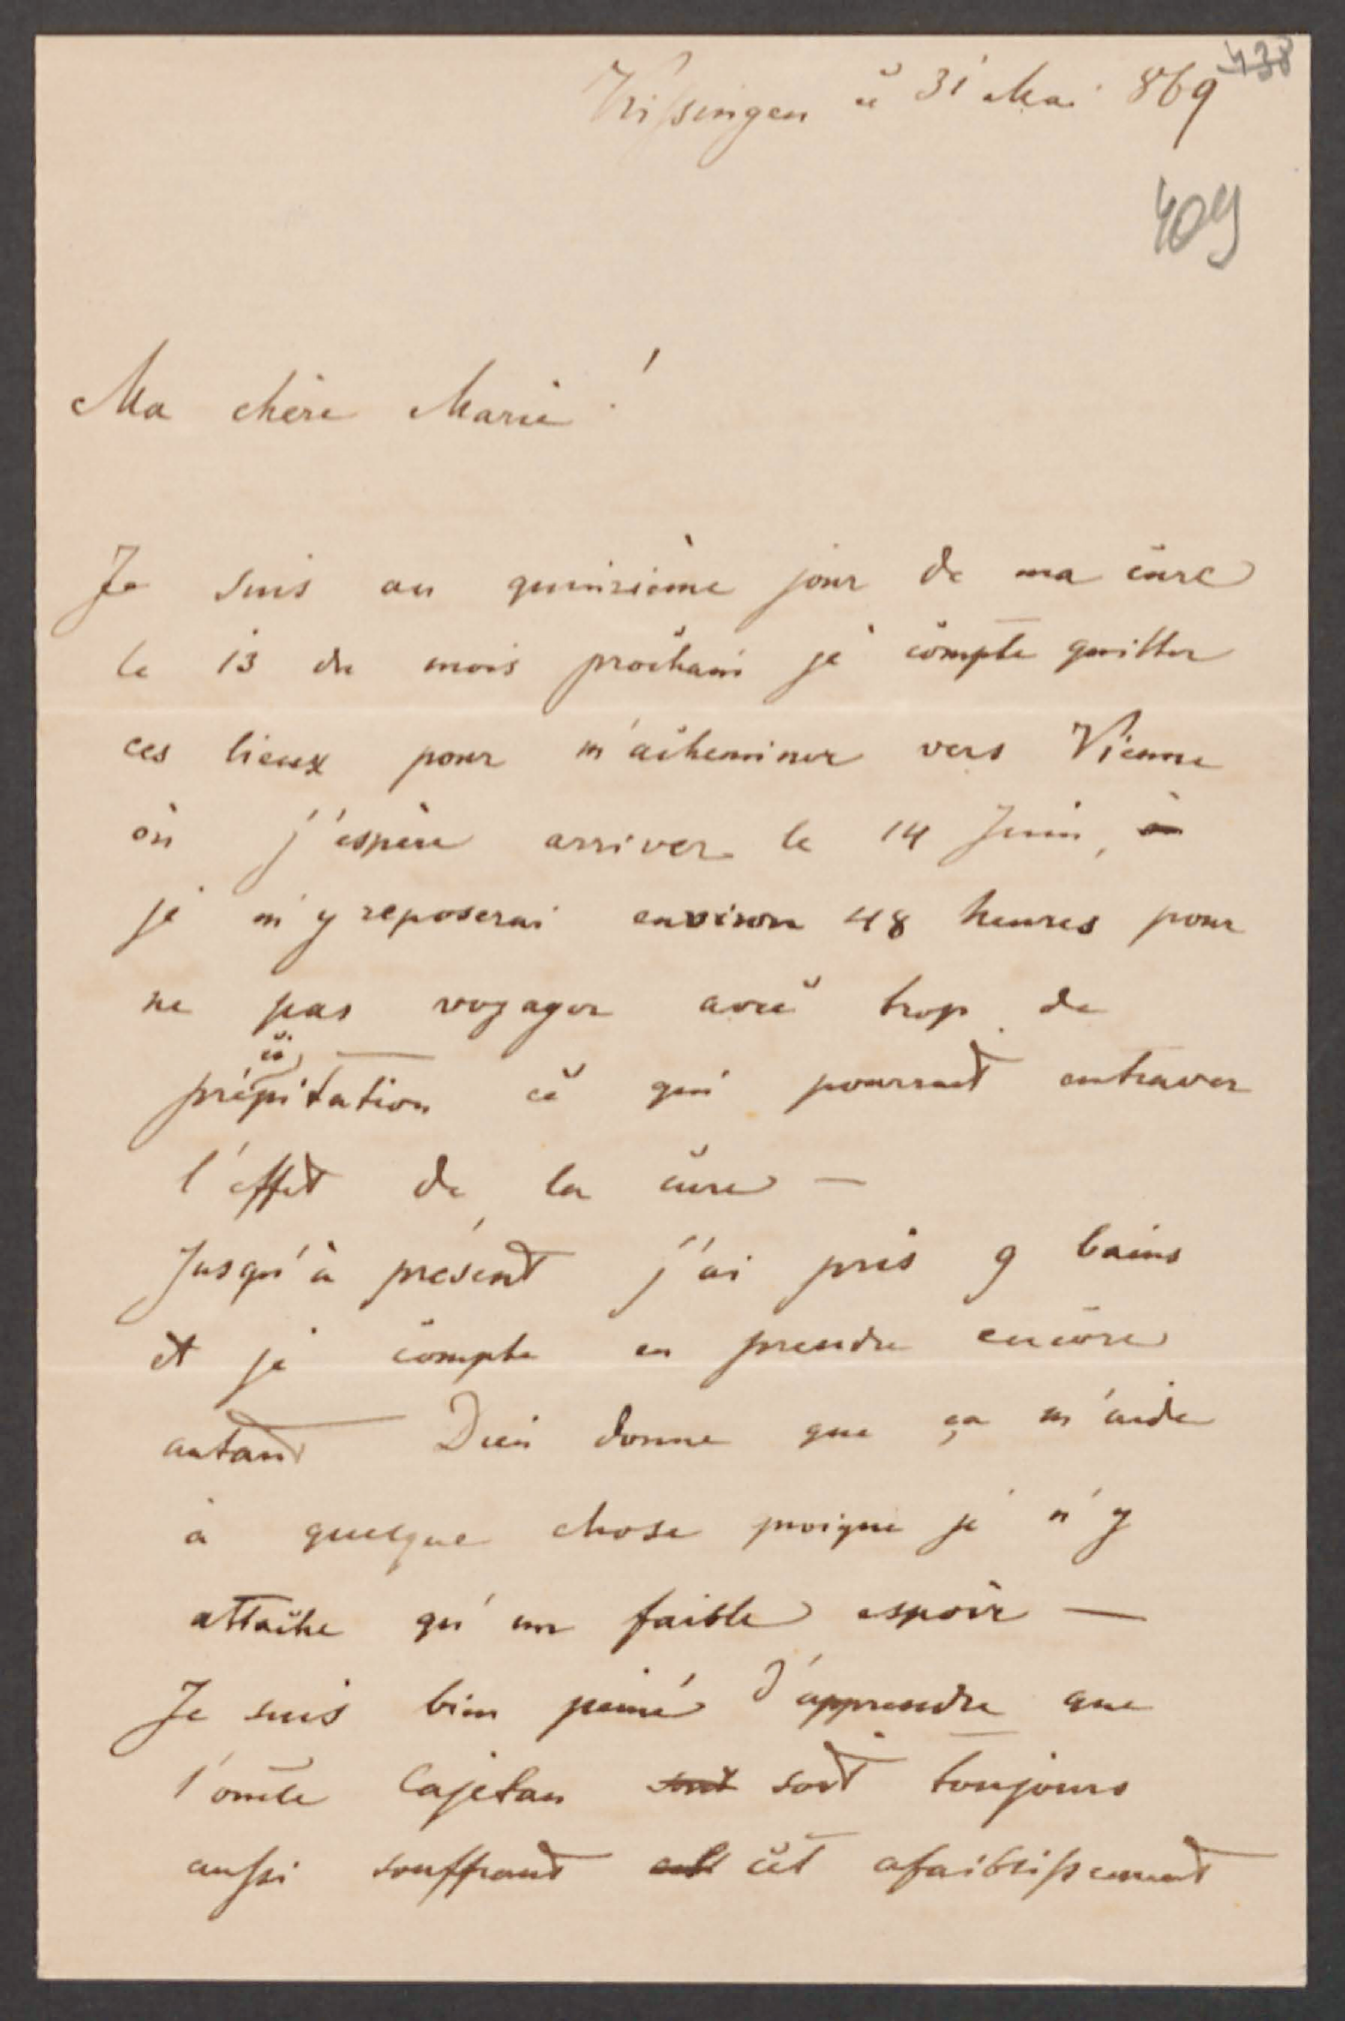 438
Kissingen ce 31 Mai 869
409
Ma chère Marie !
Je suis au quinzième jour de ma cure
le 13 du mois prochain je compte quitter
ces lieux pour m'acheminer vers Vienne
où j'espère arriver le 14 Juin,
je m'y reposerai environ 48 heures pour
ne pas voyager avec trop de
précipitation ce qui pourrait entraver
l'effet de la cure —
Jusqu'à présent j'ai pris 9 bains
et je compte en prendre encore
autant Dieu donne que ça m'aide
à quelque chose puique je n'y
attache qu'un faible espoir —
Je suis bien peiné d'apprendre que
l'oncle Cajetan soit toujours
aussi souffrant cet afaiblissement